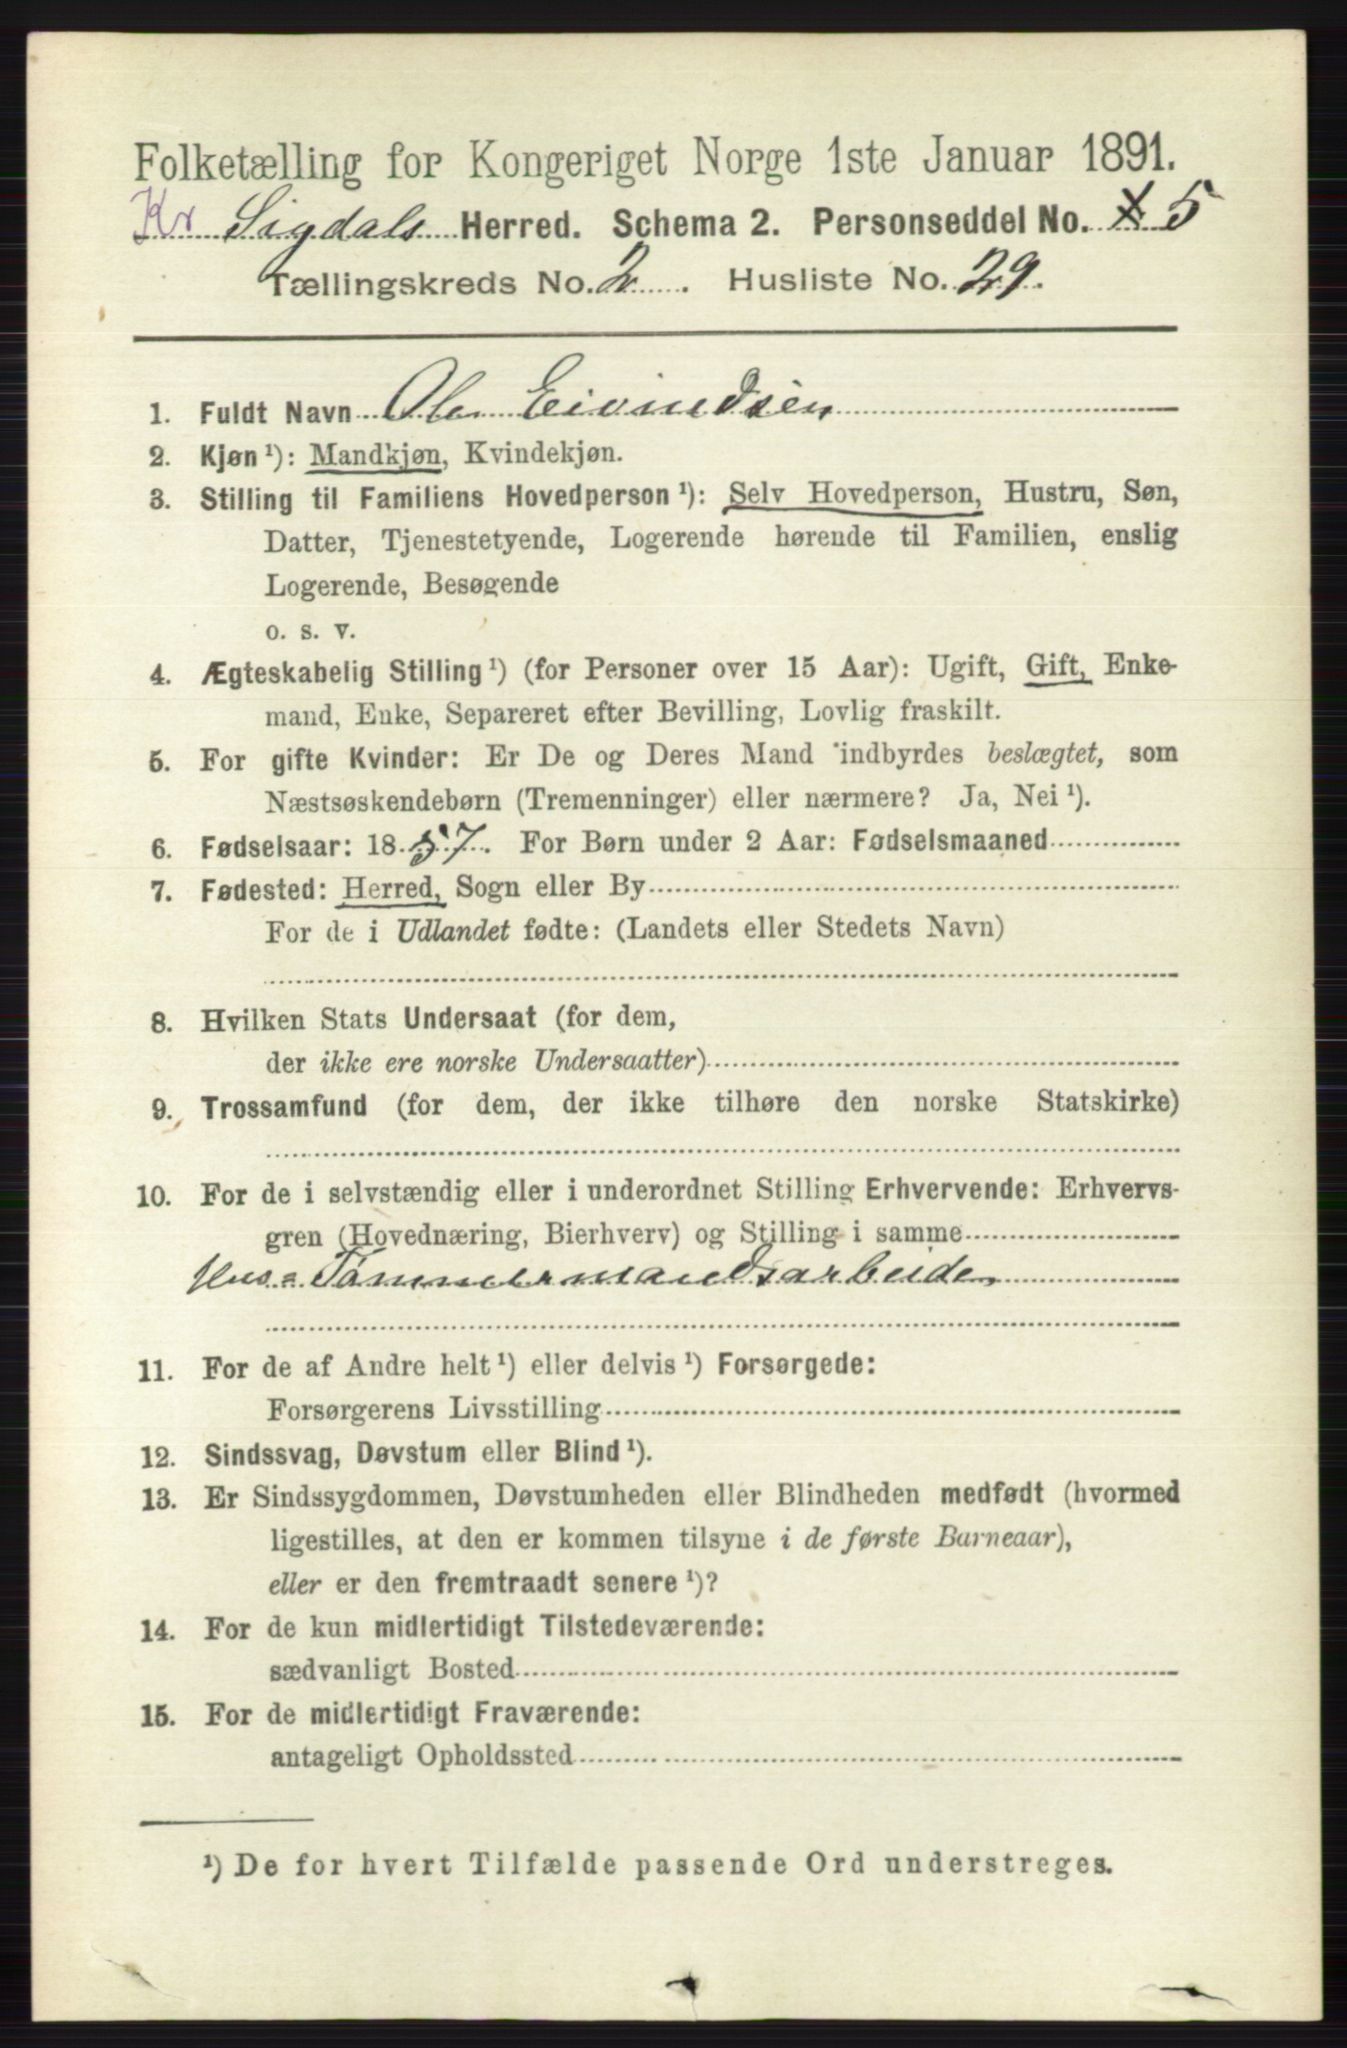 Folketælling for Kongeriget Norge 1ste Januar 1891.
Kr Sigdals Herred. Schema 2. Personseddel No. 5
Tællingskreds No. 2. Husliste No. 29.
1. Fuldt Navn Ole Eivindsen
2. Kjøn ¹): Mandkjøn, Kvindekjøn.
3. Stilling til Familiens Hovedperson ¹): Selv Hovedperson, Hustru, Søn,
Datter, Tjenestetyende, Logerende hørende til Familien, enslig
Logerende, Besøgende
o. s. v.
4. Ægteskabelig Stilling ¹) (for Personer over 15 Aar): Ugift, Gift, Enke-
mand, Enke, Separeret efter Bevilling, Lovlig fraskilt.
5. For gifte Kvinder: Er De og Deres Mand indbyrdes beslægtet, som
Næstsøskendebørn (Tremenninger) eller nærmere? Ja, Nei ¹).
6. Fødselsaar: 1857. For Børn under 2 Aar: Fødselsmaaned
7. Fødested: Herred, Sogn eller By
For de i Udlandet fødte: (Landets eller Stedets Navn)
8. Hvilken Stats Undersaat (for dem,
der ikke ere norske Undersaatter)
9. Trossamfund (for dem, der ikke tilhøre den norske Statskirke)
10. For de i selvstændig eller i underordnet Stilling Erhvervende: Erhvervs-
gren (Hovednæring, Bierhverv) og Stilling i samme
Hus = Tømmermandsarbeider
11. For de af Andre helt ¹) eller delvis ¹) Forsørgede:
Forsørgerens Livsstilling
12. Sindssvag, Døvstum eller Blind ¹).
13. Er Sindssygdommen, Døvstumheden eller Blindheden medfødt (hvormed
ligestilles, at den er kommen tilsyne i de første Barneaar),
eller er den fremtraadt senere ¹)?
14. For de kun midlertidigt Tilstedeværende:
sædvanligt Bosted
15. For de midlertidigt Fraværende:
antageligt Opholdssted
¹) De for hvert Tilfælde passende Ord understreges.